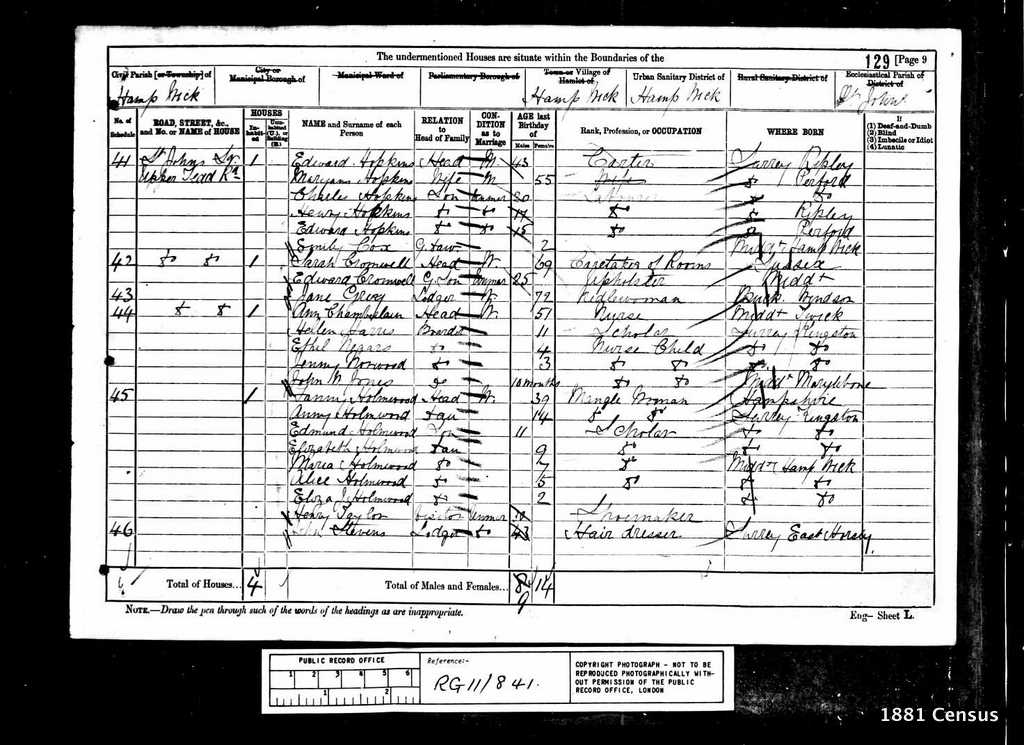 The undermentioned Houses are situate within the Boundaries of the 129 [Page 9
Civil Parish [or Township] of City or Municipal Borough of Municipal Ward of Parliamentary Borough of Town or Village of Hamlet of Urban Sanitary District of Rural Sanitary District of Ecclesiastical Parish of District of
Hamp Wick Hamp Wick Hamp Wick St Johns
No. of Schedule ROAD, STREET, &c., and No. or NAME of HOUSE HOUSES Inhabited Uninhabited (U.), or Building (B.) NAME and Surname of each Person RELATION to Head of Family CONDITION as to Marriage AGE last Birthday of Males Females Rank, Profession, or OCCUPATION WHERE BORN If (1) Deaf-and-Dumb (2) Blind (3) Imbecile or Idiot (4) Lunatic
41 St Johns 1 Edward Hopkins Head M 43 Carter Surrey Ripley
Upper Tedd Rd Maryann Hopkins Wife M 55 Wife do Perford
Charles Hopkins Son Unmar 20 Labourer do do
Henry Hopkins do do 17 do do Ripley
Edward Hopkins do do 15 do do Perford
Emily Cox G. Daur 2 Middx Hamp Wick
42 do do 1 Sarah Cromwell Head W. 69 Caretaker of Rooms Sussex
Edward Cromwell G. Son Unmar 25 Upholster Middx
43 Jane Grey Lodger W. 72 Nedlewoman Buck. Windson
44 do do 1 Ann Chamberlain Head W. 51 Nurse Middx Twick
Helen Harris Boarder 11 Scholar Surrey Kingston
Ethel 4 Nurse Child do do
Jenny Norwood 3 do do do do
John W Jones do 10 months do do Middx Marylebone
45 1 Fanny Holmwood Head W. 39 Mangle Woman Hampshire
Anny Holmwood Dau 14 do do Surrey Kingston
Edmund Holmwood Son 11 Scholar do do
Elizabeth Holmwood Dau 9 do do do
Maria Holmwood do 7 do Middx Hamp Wick
Alice Holmwood do 5 do do do
Eliza J Holmwood do 2 do do
Henry Taylor Visitor Unmar Shoemaker
46 Stevens Lodger do 43 Hair dresser Surrey East Horsly
Total of Houses... 4 Total of Males and Females... 8 14
9
NOTE.—Draw the pen through such of the words of the headings as are inappropriate. Eng- Sheet L.
PUBLIC RECORD OFFICE
1 2 3 4 5 6
1 2
Reference:-
RG 11/841.
COPYRIGHT PHOTOGRAPH - NOT TO BE
REPRODUCED PHOTOGRAPHICALLY WITH-
OUT PERMISSION OF THE PUBLIC
RECORD OFFICE, LONDON
1881 Census